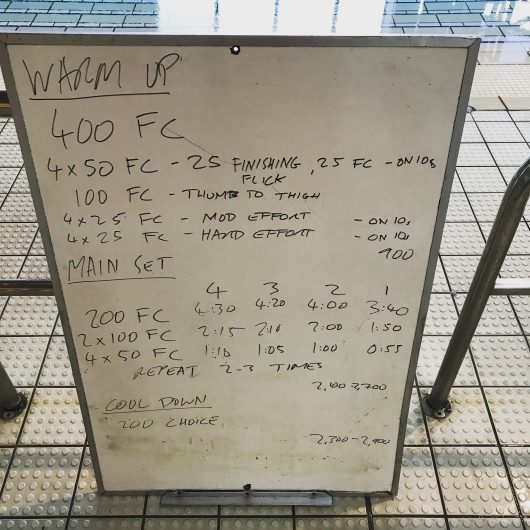 WARM UP
400 FC
4 x 50 FC - 25 FINISHING, 25 FC - ON 10s
FLICK
100 FC - THUMB TO THIGH
4 x 25 FC - MOD EFFORT - ON 10s
4 x 25 FC - HARD EFFORT - ON 10s
900
MAIN SET
4 3 2 1
200 FC 4:30 4:20 4:00 3:40
2 x 100 FC 2:15 2:10 2:00 1:50
4 x 50 FC 1:10 1:05 1:00 0:55
REPEAT 2-3 TIMES
2,100 2,700
COOL DOWN
200 CHOICE
2,300 - 2,900